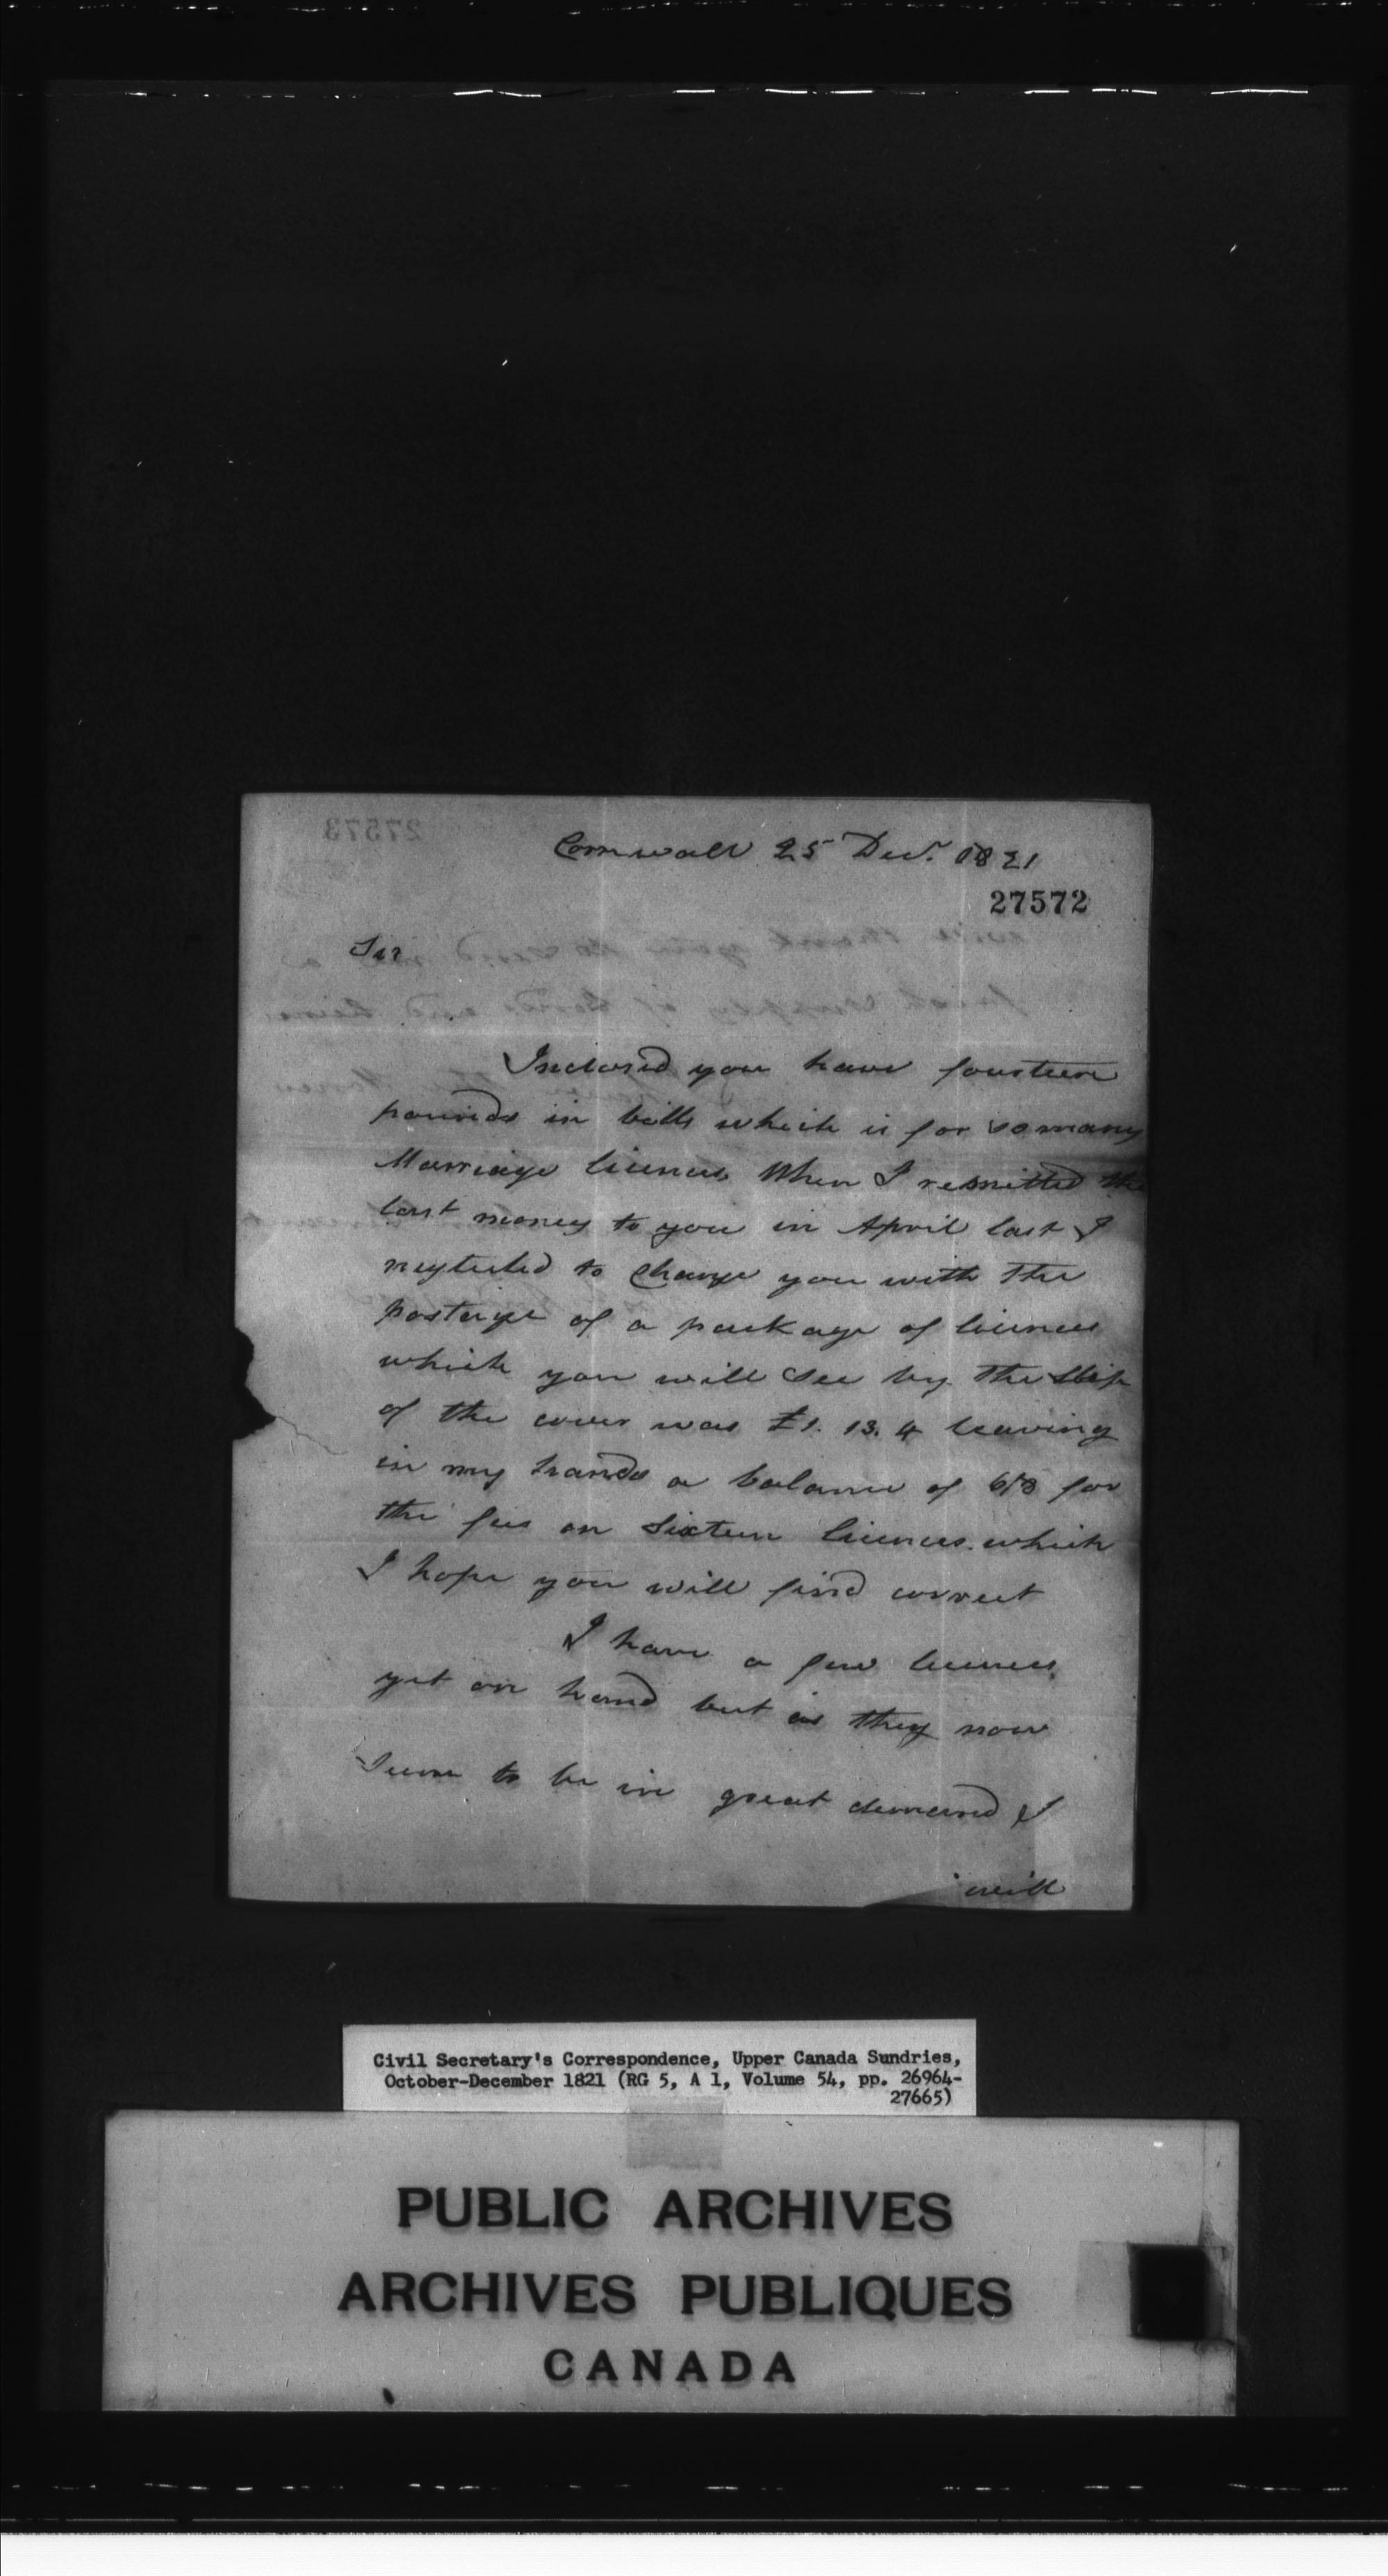 27573
Cornwall 25 Decr. 1821
27572
Sir
Inclosed you have fourteen
pounds in bills which is for so many
Marriage licences When I remitted the
last money to you in April last I
neglected to charge you with the
postage of a package of licences
which you will see by the slip
of the cover was £1. 13. 4 leaving
in my hands a balance of 6/8 for
the fees on Sixteen licences. which
I hope you will find correct
I have a few licences
yet on hand but as they now
seem to be in great demand I
will
Civil Secretary's Correspondence, Upper Canada Sundries,
October-December 1821 (RG 5, A 1, Volume 54, pp. 26964-
27665)
PUBLIC ARCHIVES
ARCHIVES PUBLIQUES
CANADA